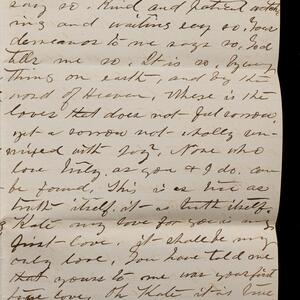 say so. Kind and patient
ing and waiting say so. Your
demeanor to me says so, God
tells me so. It is so. by every
thing on earth, and by the
word of Heaven. Where is the
lover that does not feel sorrow,
yet a sorrow not wholly un-
mixed with joy? None who
love truly as you & I do, can
be found. This is as true as
truth itself, it is truth itself.
Kate my love for you is my
first love. it shall be my
only love. You have told me
that yours to me was your first
true love. Oh Kate it is true